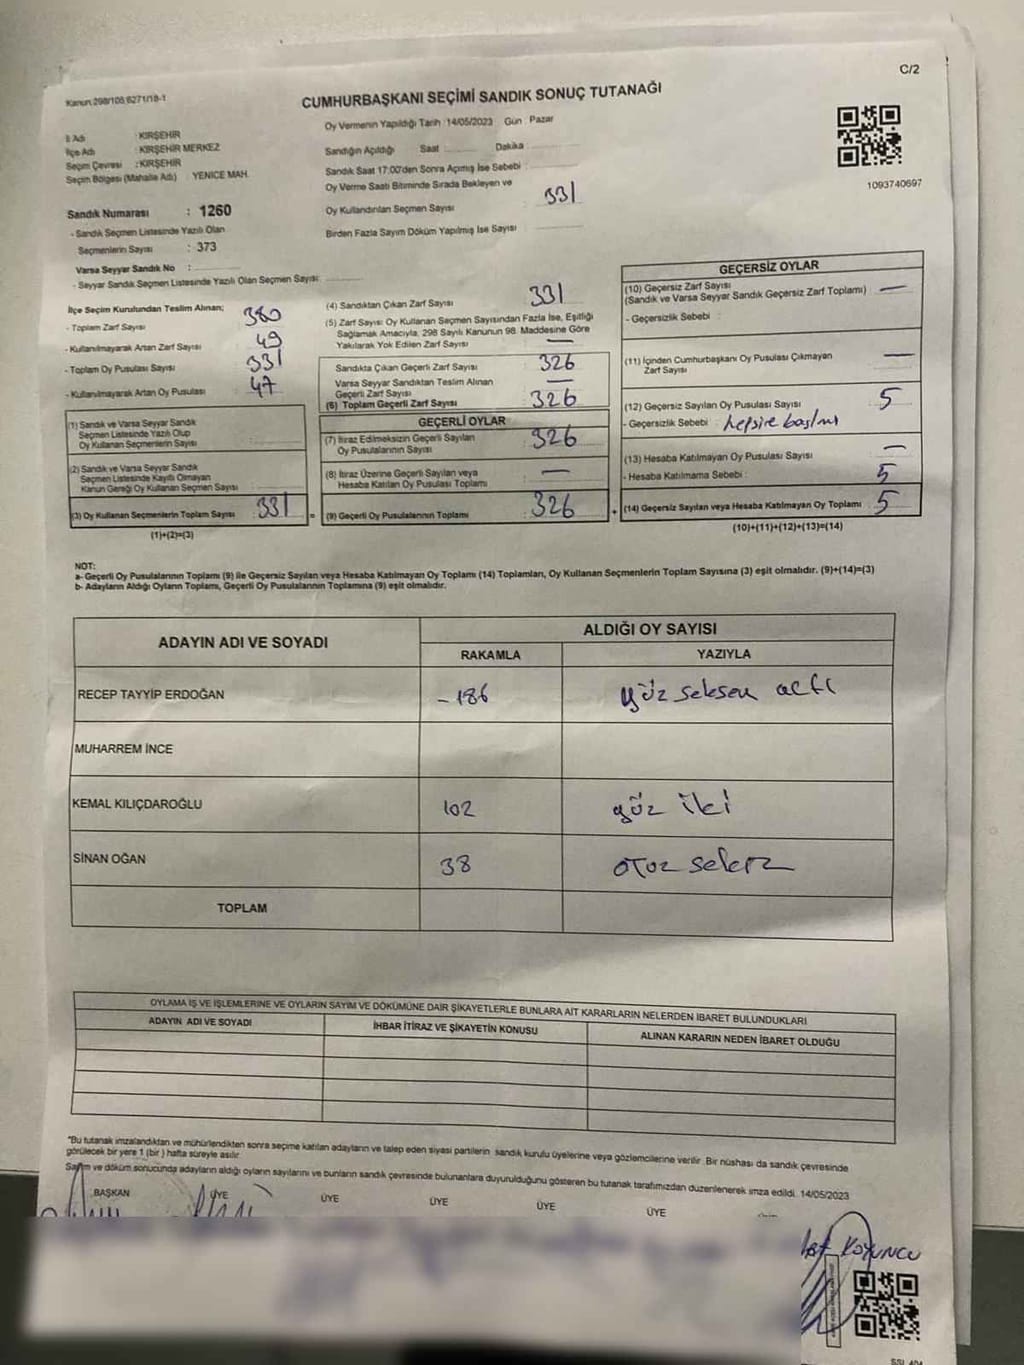 C/2
Kanun 298/105,6271/18-1
CUMHURBAŞKANI SEÇİMİ SANDIK SONUÇ TUTANAĞI
İl Adı : KIRŞEHİR
İlçe Adı : KIRŞEHİR MERKEZ
Seçim Çevresi : KIRŞEHİR
Seçim Bölgesi (Mahalle Adı) : YENİCE MAH.
Sandık Numarası : 1260
- Sandık Seçmen Listesinde Yazılı Olan
Seçmenlerin Sayısı : 373
Varsa Seyyar Sandık No :
- Seyyar Sandık Seçmen Listesinde Yazılı Olan Seçmen Sayısı:
Oy Vermenin Yapıldığı Tarih : 14/05/2023 Gün : Pazar
Sandığın Açıldığı Saat Dakika
Sandık Saat 17:00'den Sonra Açımış İse Sebebi :
Oy Verme Saati Bitiminde Sırada Bekleyen ve
Oy Kullandırılan Seçmen Sayısı : 331
Birden Fazla Sayım Döküm Yapılmış İse Sayısı
1093740697
İlçe Seçim Kurulundan Teslim Alınan;
- Toplam Zarf Sayısı 380
- Kullanılmayarak Artan Zarf Sayısı 49
- Toplam Oy Pusulası Sayısı 331
- Kullanılmayarak Artan Oy Pusulası 47
(1) Sandık ve Varsa Seyyar Sandık
Seçmen Listesinde Yazılı Olup
Oy Kullanan Seçmenlerin Sayısı
(2) Sandık ve Varsa Seyyar Sandık
Seçmen Listesinde Kayıtlı Olmayan
Kanun Gereği Oy Kullanan Seçmen Sayısı
(3) Oy Kullanan Seçmenlerin Toplam Sayısı : 331 =
(1)+(2)=(3)
(4) Sandıktan Çıkan Zarf Sayısı 331
(5) Zarf Sayısı Oy Kullanan Seçmen Sayısından Fazla İse, Eşitliği
Sağlamak Amacıyla, 298 Sayılı Kanunun 98. Maddesine Göre
Yakılarak Yok Edilen Zarf Sayısı —
Sandıkta Çıkan Geçerli Zarf Sayısı 326
Varsa Seyyar Sandıktan Teslim Alınan
Geçerli Zarf Sayısı —
(6) Toplam Geçerli Zarf Sayısı 326
GEÇERLİ OYLAR
(7) İtiraz Edilmeksizin Geçerli Sayılan
Oy Pusulalarının Sayısı 326
(8) İtiraz Üzerine Geçerli Sayılan veya
Hesaba Katılan Oy Pusulası Toplamı —
(9) Geçerli Oy Pusulalarının Toplamı 326 +
GEÇERSİZ OYLAR
(10) Geçersiz Zarf Sayısı
(Sandık ve Varsa Seyyar Sandık Geçersiz Zarf Toplamı) —
- Geçersizlik Sebebi :
(11) İçinden Cumhurbaşkanı Oy Pusulası Çıkmayan
Zarf Sayısı —
(12) Geçersiz Sayılan Oy Pusulası Sayısı 5
- Geçersizlik Sebebi : hepsine basılmış
(13) Hesaba Katılmayan Oy Pusulası Sayısı —
- Hesaba Katılmama Sebebi : 5
(14) Geçersiz Sayılan veya Hesaba Katılmayan Oy Toplamı 5
(10)+(11)+(12)+(13)=(14)
NOT:
a- Geçerli Oy Pusulalarının Toplamı (9) ile Geçersiz Sayılan veya Hesaba Katılmayan Oy Toplamı (14) Toplamları, Oy Kullanan Seçmenlerin Toplam Sayısına (3) eşit olmalıdır. (9)+(14)=(3)
b- Adayların Aldığı Oyların Toplamı, Geçerli Oy Pusulalarının Toplamına (9) eşit olmalıdır.
ADAYIN ADI VE SOYADI ALDIĞI OY SAYISI
RAKAMLA YAZIYLA
RECEP TAYYİP ERDOĞAN - 186 yüz seksen altı
MUHARREM İNCE
KEMAL KILIÇDAROĞLU 102 yüz iki
SİNAN OĞAN 38 otuz sekiz
TOPLAM
OYLAMA İŞ VE İŞLEMLERİNE VE OYLARIN SAYIM VE DÖKÜMÜNE DAİR ŞİKAYETLERLE BUNLARA AİT KARARLARIN NELERDEN İBARET BULUNDUKLARI
ADAYIN ADI VE SOYADI İHBAR İTİRAZ VE ŞİKAYETİN KONUSU ALINAN KARARIN NEDEN İBARET OLDUĞU
*Bu tutanak imzalandıktan ve mühürlendikten sonra seçime katılan adayların ve talep eden siyasi partilerin sandık kurulu üyelerine veya gözlemcilerine verilir. Bir nüshası da sandık çevresinde
görülecek bir yere 1 (bir) hafta süreyle asılır.
Sayım ve döküm sonucunda adayların aldığı oyların sayılarını ve bunların sandık çevresinde bulunanlara duyurulduğunu gösteren bu tutanak tarafımızdan düzenlenerek imza edildi. 14/05/2023
BAŞKAN ÜYE ÜYE ÜYE ÜYE ÜYE
KOYUNCU